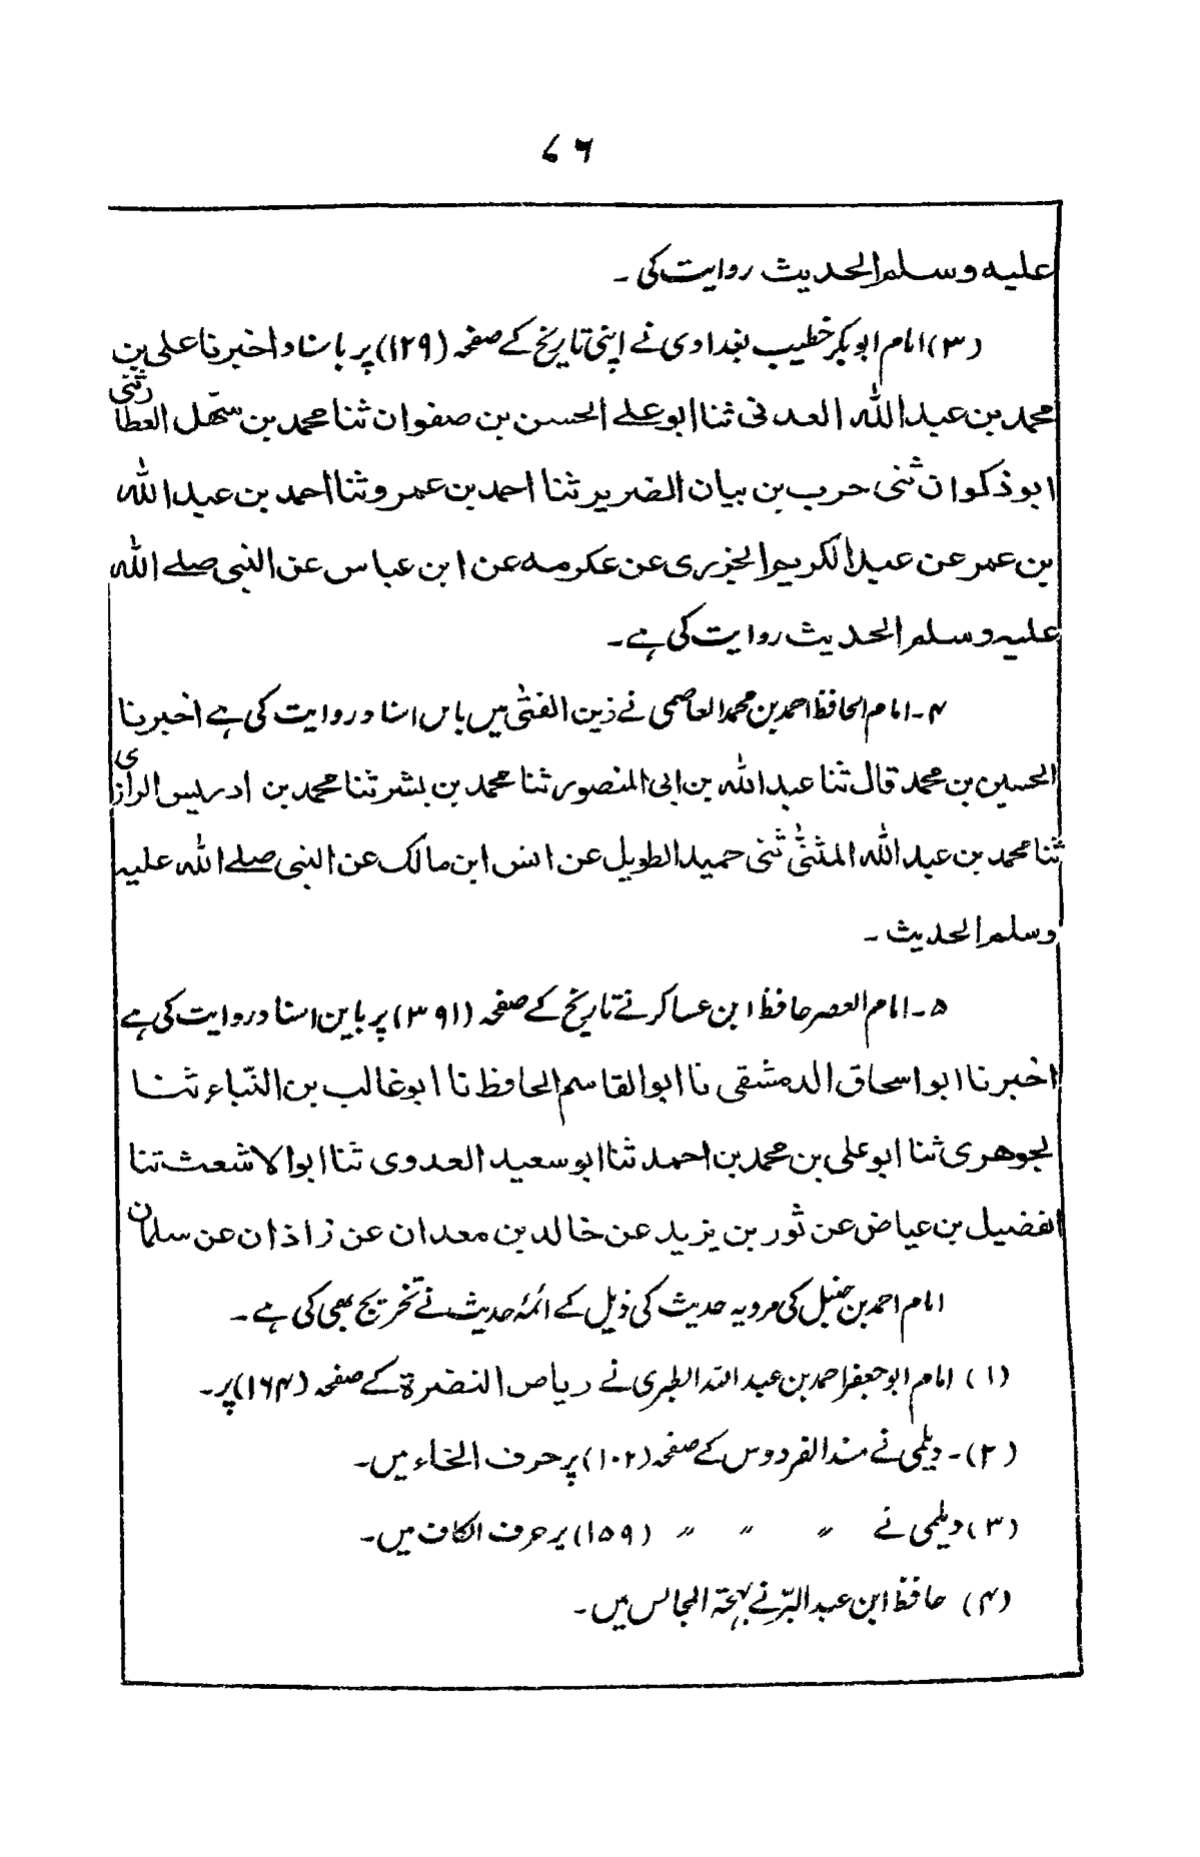 ۷۶
علیہ وسلم الحدیث روایت کی ۔
(۳) امام ابوبکر خطیب بغدادی نے اپنی تاریخ کے صفحہ (۱۲۹) پر باسناد اخبرنا علی بن
محمد بن عبد اللہ العدنی ثنا ابو علے الحسن بن صفوان ثنا محمد بن سھل العطار ثنی
ابو ذکوان ثنی حرب بن بیان الضریر ثنا احمد بن عمرو ثنا احمد بن عبد اللہ
بن عمر عن عبد الکریم الجزری عن عکرمہ عن ابن عباس عن النبی صلے اللہ
علیہ وسلم الحدیث روایت کی ہے۔
۴۔ امام الحافظ احمد بن محمد العاصمی نے زین الفتیٰ میں باس اسناد روایت کی ہے اخبرنا
الحسین بن محمد قال ثنا عبد اللہ بن ابی المنصور ثنا محمد بن بشر ثنا محمد بن ادریس الرازی
ثنا محمد بن عبد اللہ المثنیٰ ثنی حمید الطویل عن انس ابن مالک عن النبی صلے اللہ علیہ
وسلم الحدیث ۔
۵۔ امام العصر حافظ ابن عساکر نے تاریخ کے صفحہ (۳۹۱) پر باین اسناد روایت کی ہے
اخبرنا ابو اسحاق الدمشقی نا ابو القاسم الحافظ نا ابو غالب بن النّباء ثنا
لجوھری ثنا ابو علی بن محمد بن احمد ثنا ابو سعید العدوی ثنا ابو الاشعث ثنا
الفضیل بن عیاض عن ثور بن یزید عن خالد بن معدان عن زاذان عن سلمان
امام احمد بن حنبل کی مرویہ حدیث کی ذیل کے ائمۂ حدیث نے تخریج بھی کی ہے ۔
(۱) امام ابو جعفر احمد بن عبد اللہ الطبری نے ریاض النضرۃ کے صفحہ (۱۶۴) پر۔
(۲)۔ دیلمی نے مسند الفردوس کے صفحہ (۱۰۲) پر حرف الخاء میں۔
(۳) دیلمی نے 〃 〃 〃 〃 (۱۵۹) پر حرف الکاف میں۔
(۴) حافظ ابن عبد البرّ نے بہجۃ المجالس میں۔